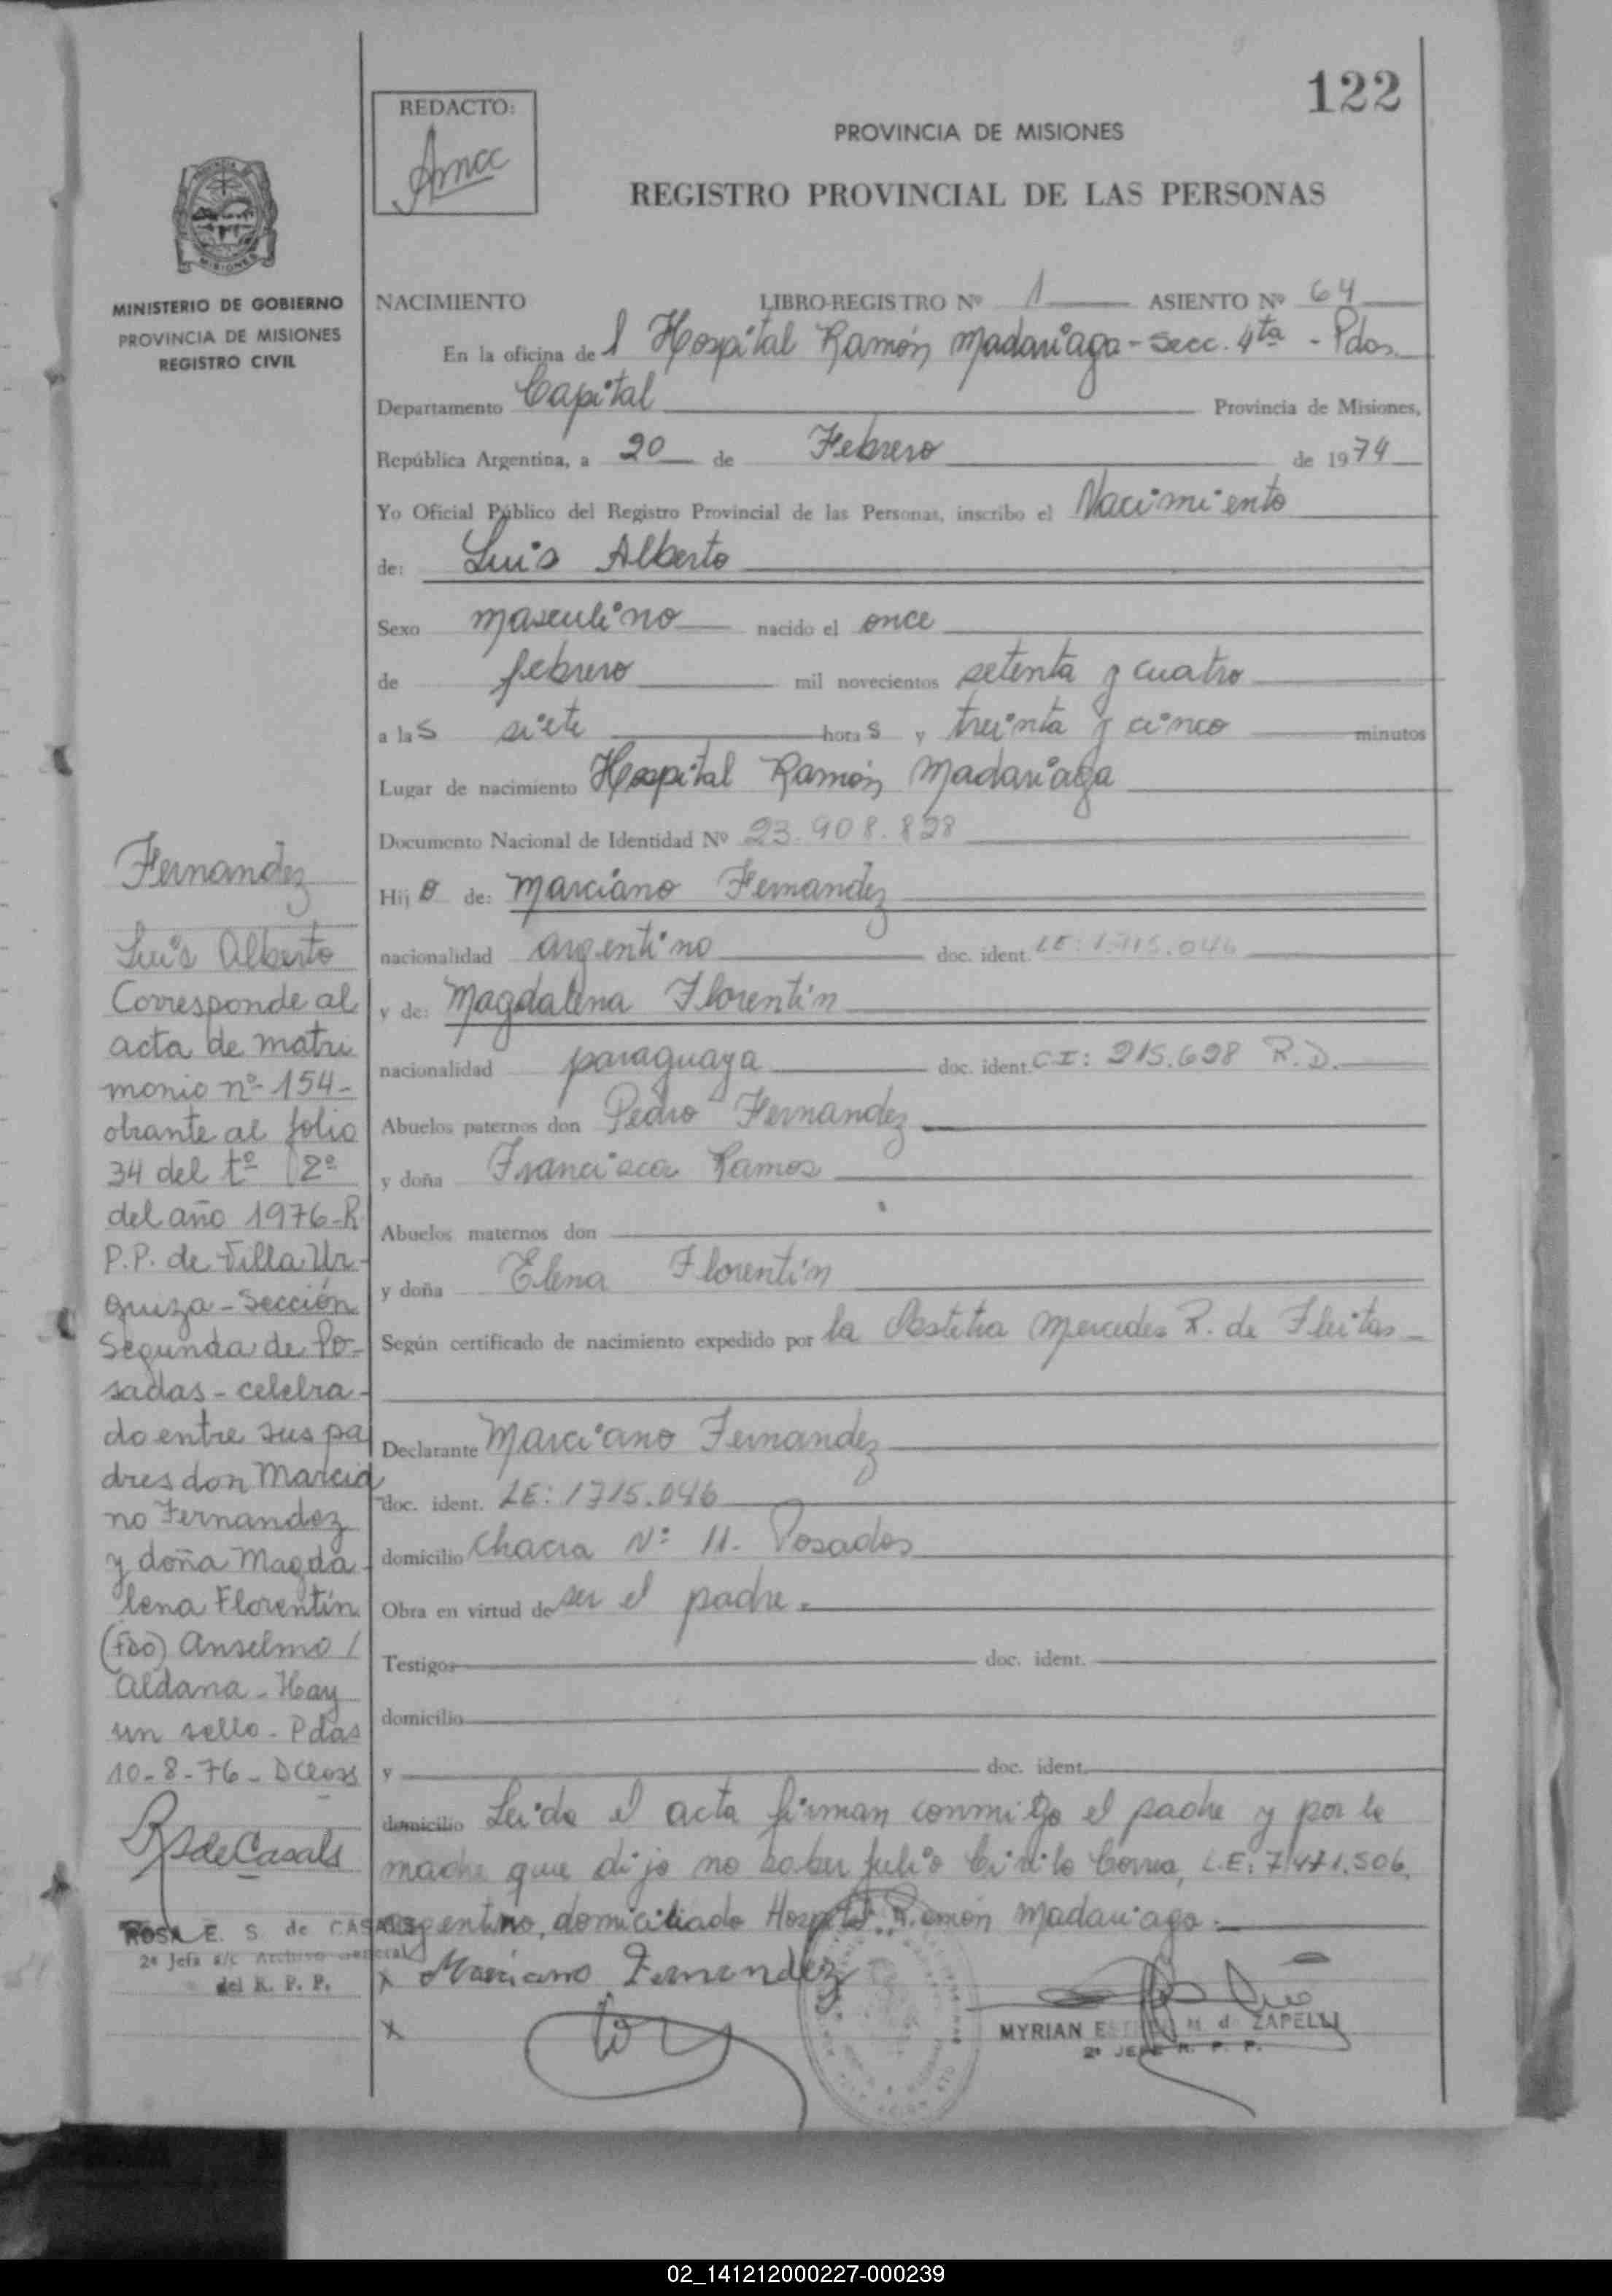 122
REDACTO:
PROVINCIA DE MISIONES
REGISTRO PROVINCIAL DE LAS PERSONAS
MINISTERIO DE GOBIERNO
PROVINCIA DE MISIONES
REGISTRO CIVIL
NACIMIENTO LIBRO-REGISTRO Nº 1 ASIENTO Nº 64
En la oficina del Hospital Ramón Madariaga - Secc. 4ta - Pdas.
Departamento Capital Provincia de Misiones,
República Argentina, a 20 de Febrero de 1974
Yo Oficial Público del Registro Provincial de las Personas, inscribo el Nacimiento
de: Luis Alberto
Sexo masculino nacido el once
de febrero mil novecientos setenta y cuatro
a las siete horas y treinta y cinco minutos
Lugar de nacimiento Hospital Ramón Madariaga
Documento Nacional de Identidad Nº 23.908.828
Hijo de: Marciano Fernandez
nacionalidad argentino doc. ident. LE: 1.715.046
y de: Magdalena Florentín
nacionalidad paraguaya doc. ident. C.I: 215.628 R.D.
Abuelos paternos don Pedro Fernandez
y doña Francisca Ramos
Abuelos maternos don
y doña Elena Florentín
Según certificado de nacimiento expedido por la Obstetra Mercedes R. de Fleitas
Declarante Marciano Fernandez
doc. ident. LE: 1715.046
domicilio Chacra Nº 11. Posadas
Obra en virtud de ser el padre.
Testigos doc. ident.
domicilio
y doc. ident.
domicilio Leida el acta firman conmigo el padre y por la
madre que dijo no saber Julio Cirilo Correa, L.E: 7.471.506,
argentino, domiciliado Hospital Ramón Madariaga.
x Marciano Fernandez
x
MYRIAN E M. d ZAPELLI
2º JEFE R. P. P.
Fernandez
Luis Alberto
Corresponde al
acta de matri
monio nº 154-
obrante al folio
34 del tº 2º
del año 1976-R.
P.P. de Villa Ur-
quiza - Sección
Segunda de Po-
sadas - celebra-
do entre sus pa
dres don Marcia
no Fernandez
y doña Magda-
lena Florentín
(Fdo) Anselmo /
Aldana - Hay
un sello - Pdas
10-8-76 -
R S de Casals
ROSA E. S. de CASALS
2ª Jefa a/c Archivo General
del R. P. P.
02_141212000227-000239